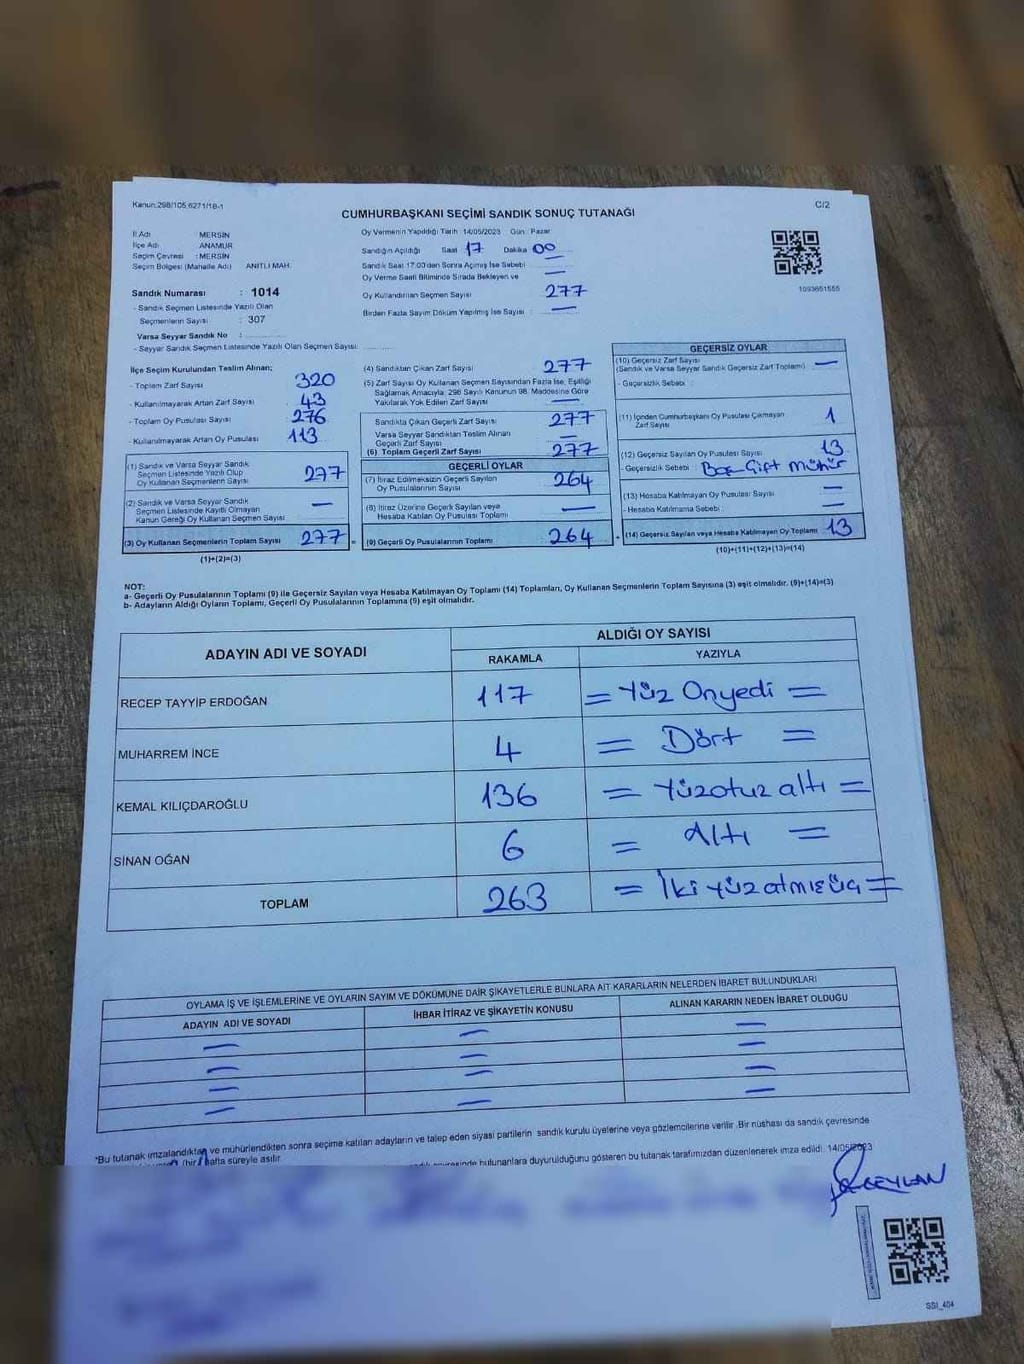 Kanun:298/105,6271/18-1
C/2
CUMHURBAŞKANI SEÇİMİ SANDIK SONUÇ TUTANAĞI
İl Adı : MERSİN
İlçe Adı : ANAMUR
Seçim Çevresi : MERSİN
Seçim Bölgesi (Mahalle Adı) ANITLI MAH.
Sandık Numarası : 1014
- Sandık Seçmen Listesinde Yazılı Olan
Seçmenlerin Sayısı : 307
Varsa Seyyar Sandık No :
- Seyyar Sandık Seçmen Listesinde Yazılı Olan Seçmen Sayısı:
Oy Vermenin Yapıldığı Tarih :14/05/2023 Gün : Pazar
Sandığın Açıldığı Saat 17 Dakika 00
Sandık Saat 17.00'den Sonra Açılmış İse Sebebi —
Oy Verme Saati Bitiminde Sırada Bekleyen ve —
Oy Kullandırılan Seçmen Sayısı 277
Birden Fazla Sayım Döküm Yapılmış İse Sayısı : —
1093651555
İlçe Seçim Kurulundan Teslim Alınan;
- Toplam Zarf Sayısı 320
- Kullanılmayarak Artan Zarf Sayısı 43
- Toplam Oy Pusulası Sayısı 276
- Kullanılmayarak Artan Oy Pusulası 113
(1) Sandık ve Varsa Seyyar Sandık
Seçmen Listesinde Yazılı Olup
Oy Kullanan Seçmenlerin Sayısı 277
(2) Sandık ve Varsa Seyyar Sandık
Seçmen Listesinde Kayıtlı Olmayan
Kanun Gereği Oy Kullanan Seçmen Sayısı —
(3) Oy Kullanan Seçmenlerin Toplam Sayısı 277 =
(1)+(2)=(3)
(4) Sandıktan Çıkan Zarf Sayısı 277
(5) Zarf Sayısı Oy Kullanan Seçmen Sayısından Fazla İse, Eşitliği
Sağlamak Amacıyla; 298 Sayılı Kanunun 98. Maddesine Göre
Yakılarak Yok Edilen Zarf Sayısı —
Sandıkta Çıkan Geçerli Zarf Sayısı 277
Varsa Seyyar Sandıktan Teslim Alınan
Geçerli Zarf Sayısı —
(6) Toplam Geçerli Zarf Sayısı 277
GEÇERLİ OYLAR
(7) İtiraz Edilmeksizin Geçerli Sayılan
Oy Pusulalarının Sayısı 264
(8) İtiraz Üzerine Geçerli Sayılan veya
Hesaba Katılan Oy Pusulası Toplamı —
(9) Geçerli Oy Pusulalarının Toplamı 264 +
GEÇERSİZ OYLAR
(10) Geçersiz Zarf Sayısı —
(Sandık ve Varsa Seyyar Sandık Geçersiz Zarf Toplamı)
- Geçersizlik Sebebi :
(11) İçinden Cumhurbaşkanı Oy Pusulası Çıkmayan
Zarf Sayısı 1
(12) Geçersiz Sayılan Oy Pusulası Sayısı 13
- Geçersizlik Sebebi : Boş-Çift mühür
(13) Hesaba Katılmayan Oy Pusulası Sayısı —
- Hesaba Katılmama Sebebi : —
(14) Geçersiz Sayılan veya Hesaba Katılmayan Oy Toplamı 13
(10)+(11)+(12)+(13)=(14)
NOT:
a- Geçerli Oy Pusulalarının Toplamı (9) ile Geçersiz Sayılan veya Hesaba Katılmayan Oy Toplamı (14) Toplamları, Oy Kullanan Seçmenlerin Toplam Sayısına (3) eşit olmalıdır. (9)+(14)=(3)
b- Adayların Aldığı Oyların Toplamı, Geçerli Oy Pusulalarının Toplamına (9) eşit olmalıdır.
ADAYIN ADI VE SOYADI
ALDIĞI OY SAYISI
RAKAMLA YAZIYLA
RECEP TAYYİP ERDOĞAN 117 = Yüz Onyedi =
MUHARREM İNCE 4 = Dört =
KEMAL KILIÇDAROĞLU 136 = Yüzotuz altı =
SİNAN OĞAN 6 = Altı =
TOPLAM 263 = İki yüz atmışüç =
OYLAMA İŞ VE İŞLEMLERİNE VE OYLARIN SAYIM VE DÖKÜMÜNE DAİR ŞİKAYETLERLE BUNLARA AİT KARARLARIN NELERDEN İBARET BULUNDUKLARI
ADAYIN ADI VE SOYADI İHBAR İTİRAZ VE ŞİKAYETİN KONUSU ALINAN KARARIN NEDEN İBARET OLDUĞU
*Bu tutanak imzalandıktan ve mühürlendikten sonra seçime katılan adayların ve talep eden siyasi partilerin sandık kurulu üyelerine veya gözlemcilerine verilir .Bir nüshası da sandık çevresinde
(bir) hafta süreyle asılır. bulunanlara duyurulduğunu gösteren bu tutanak tarafımızdan düzenlenerek imza edildi. 14/05/2023
CEYLAN
SSI_404